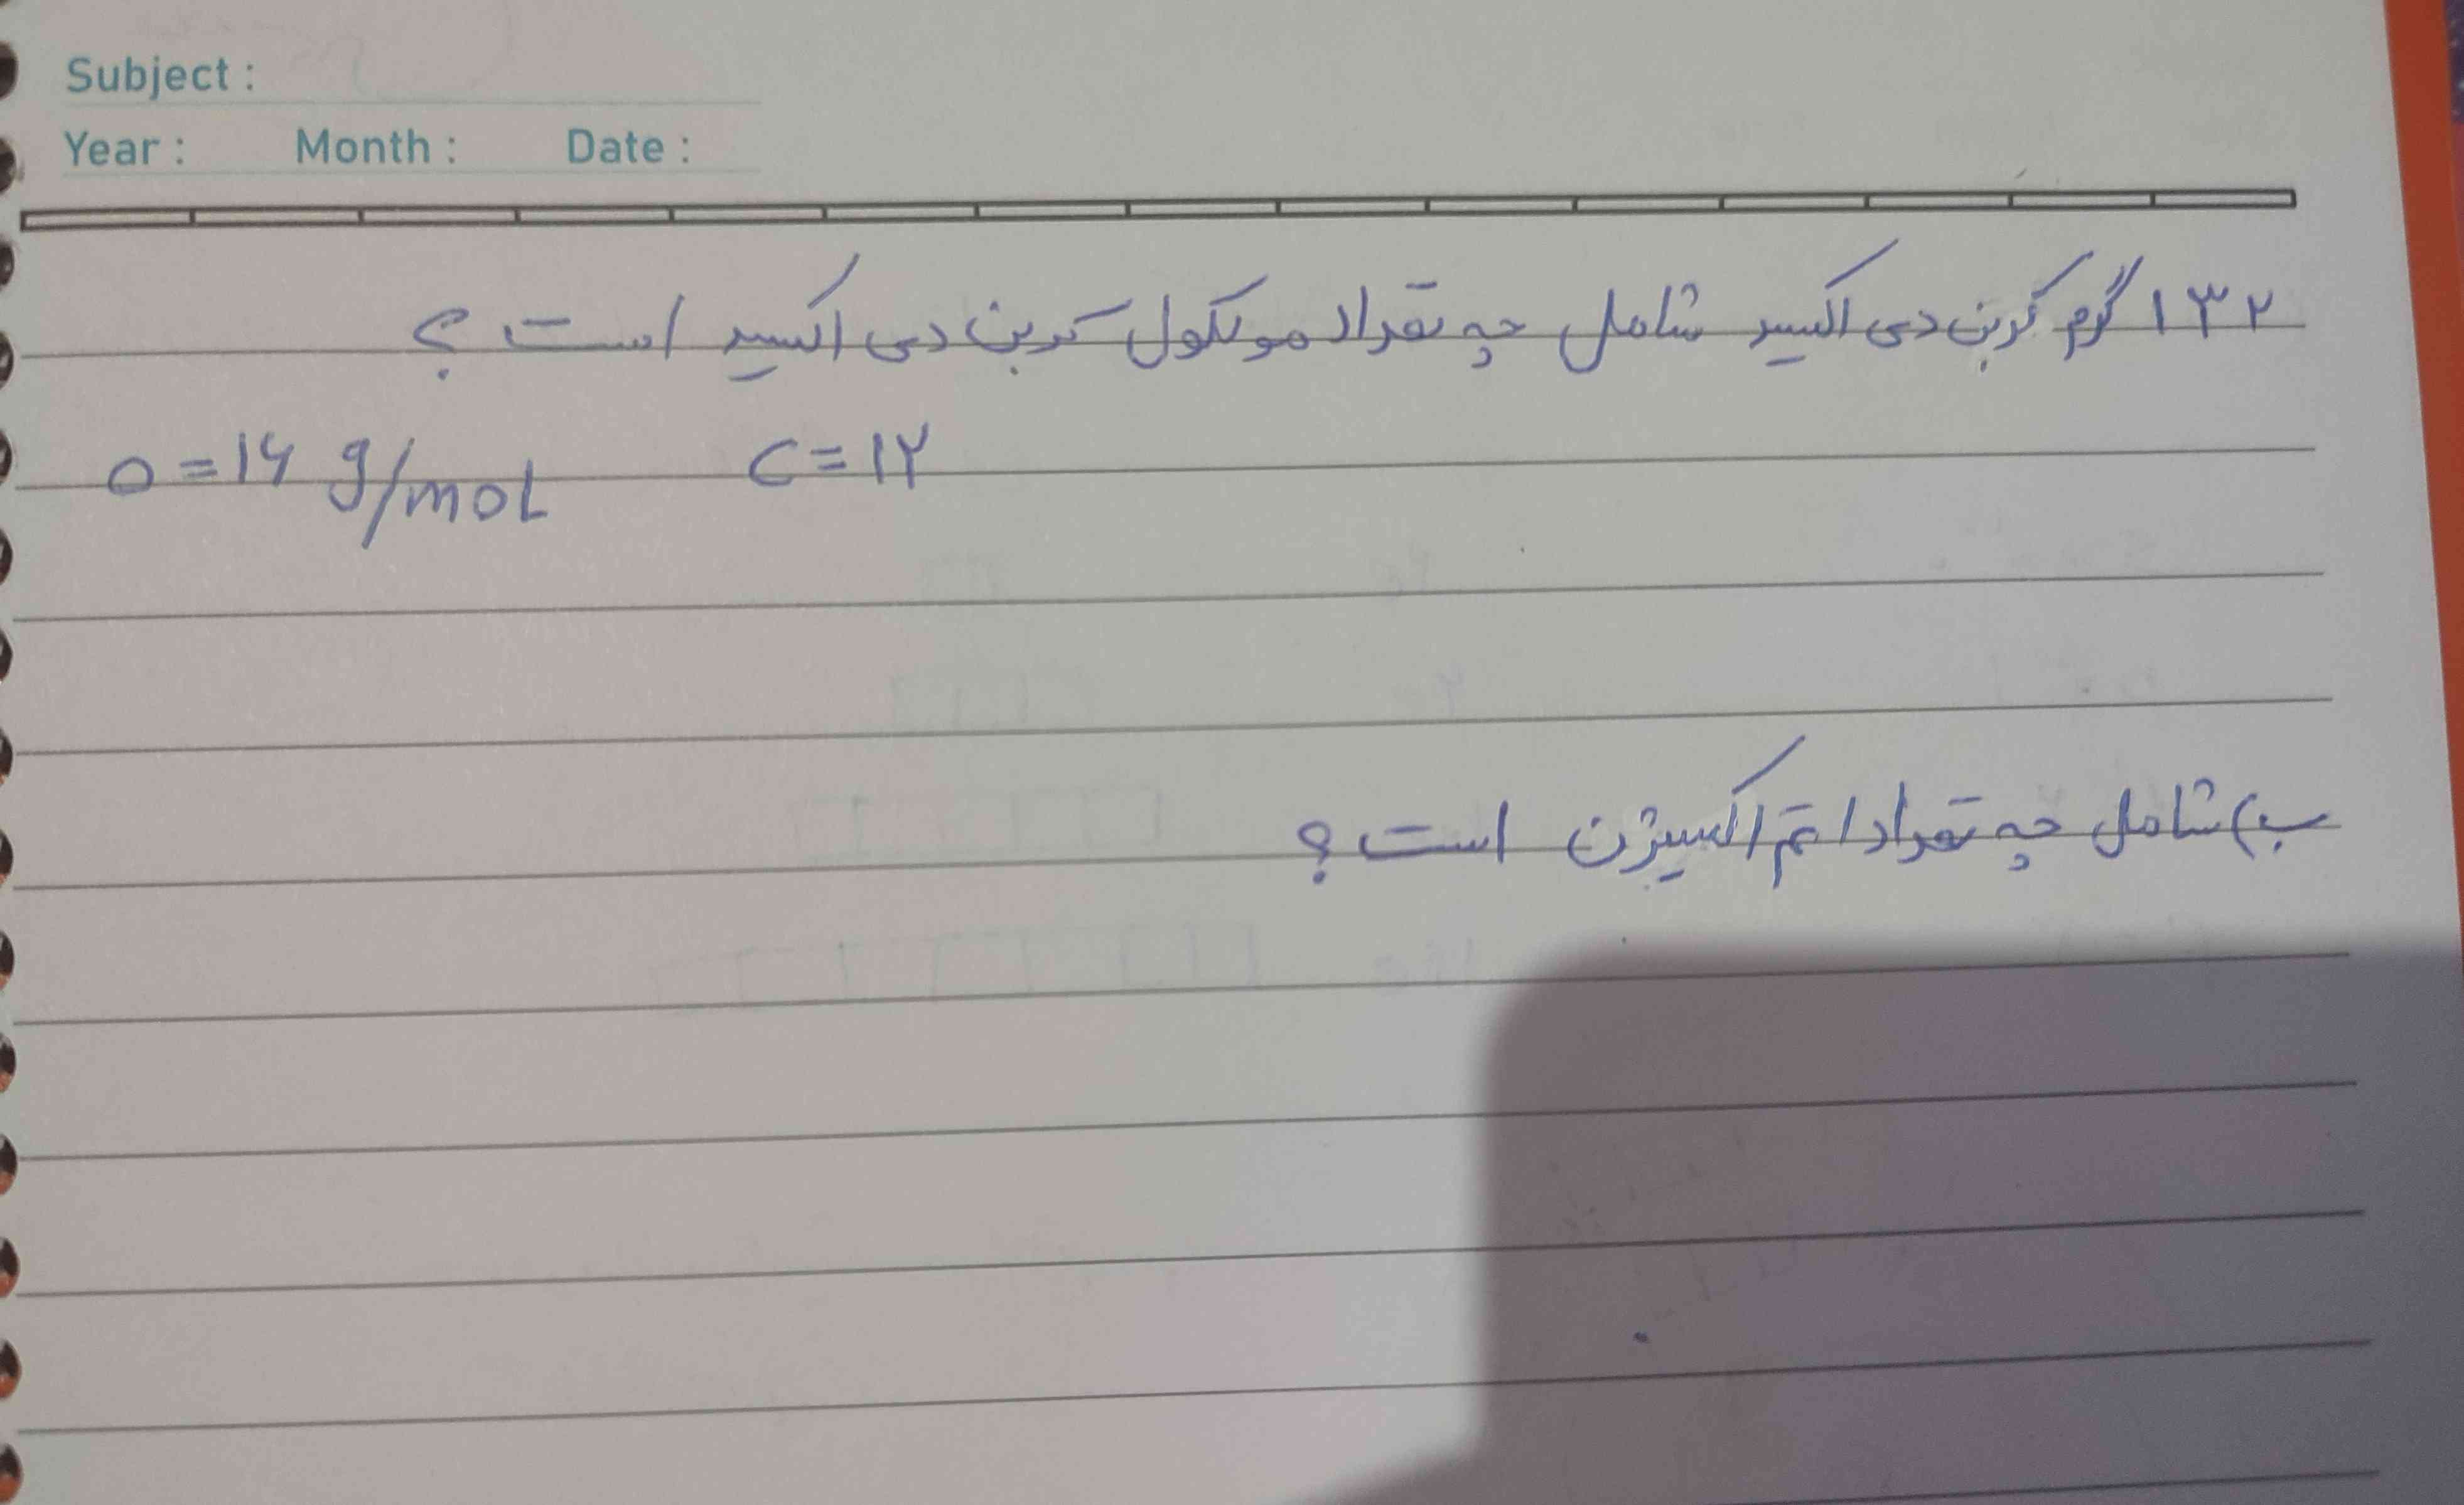 Subject :
Year : Month : Date :
۱۳۲ گرم کربن دی اکسید شامل چه تعداد مولکول کربن دی اکسید است ؟
O = ۱۶ g/mol C = ۱۲
ب) شامل چه تعداد اتم اکسیژن است ؟